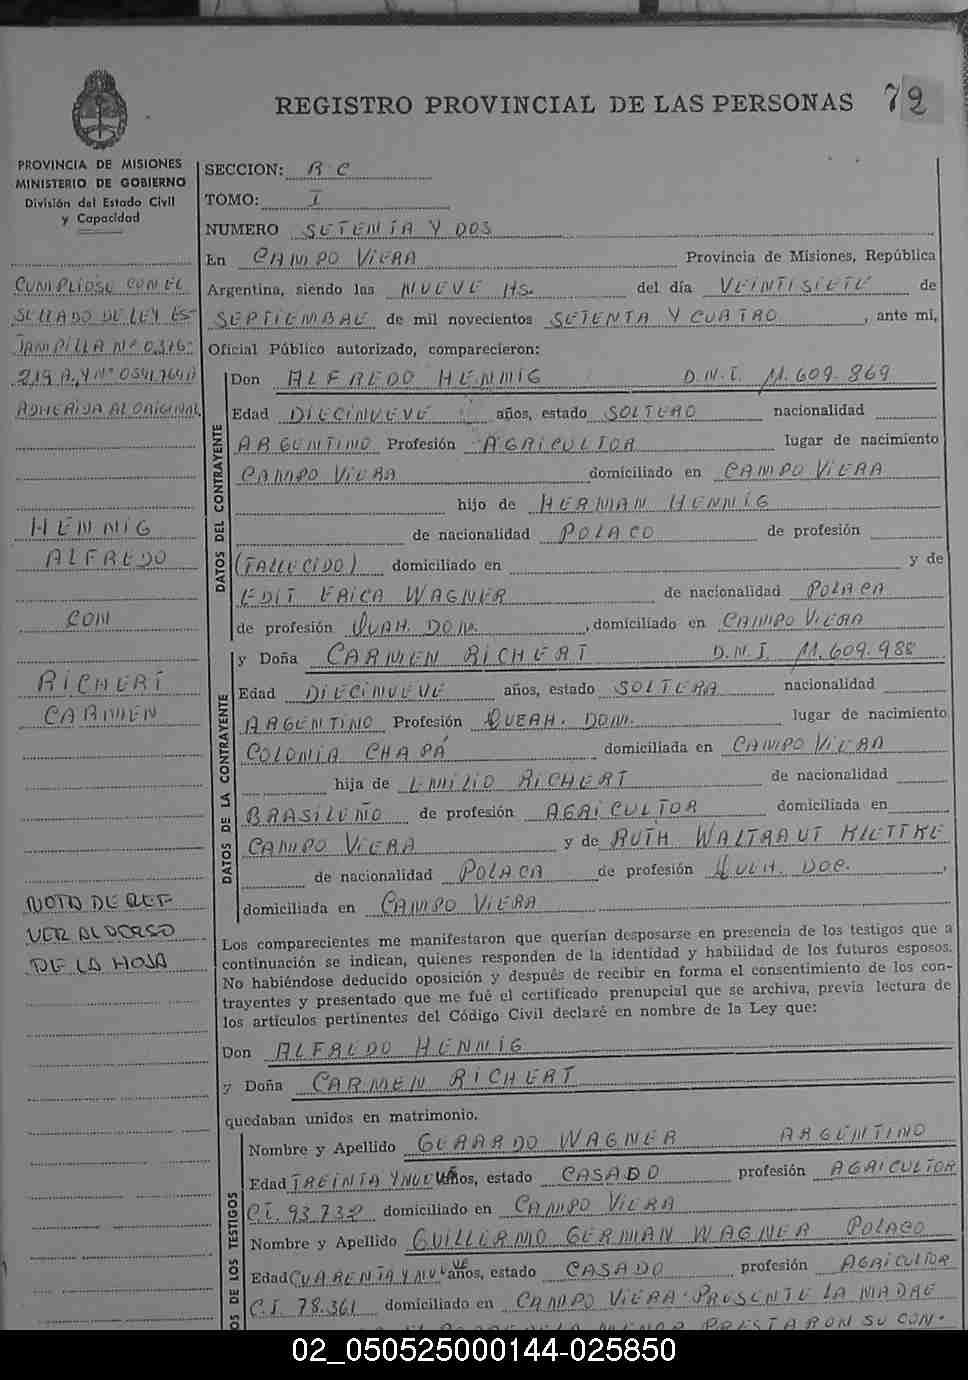 REGISTRO PROVINCIAL DE LAS PERSONAS 72
PROVINCIA DE MISIONES
MINISTERIO DE GOBIERNO
División del Estado Civil
y Capacidad
CUMPLIOSE CON EL
SELLADO DE LEY ES-
TAMPILLA Nº 0.376.
219 A. Y Nº 0541.764 A
ADHERIDA AL ORIGINAL
HENNIG
ALFREDO
CON
RICHERT
CARMEN
NOTA DE REF
VER AL DORSO
DE LA HOJA
SECCION: R C
TOMO: I
NUMERO SETENTA Y DOS
En CAMPO VIERA Provincia de Misiones, República
Argentina, siendo las NUEVE HS. del día VEINTISIETE de
SEPTIEMBRE de mil novecientos SETENTA Y CUATRO, ante mi,
Oficial Público autorizado, comparecieron:
DATOS DEL CONTRAYENTE
Don ALFREDO HENNIG D.N.I. 11.609.869
Edad DIECINUEVE años, estado SOLTERO nacionalidad
ARGENTINO Profesión AGRICULTOR lugar de nacimiento
CAMPO VIERA domiciliado en CAMPO VIERA
hijo de HERMAN HENNIG
de nacionalidad POLACO de profesión
(FALLECIDO) domiciliado en y de
EDIT ERICA WAGNER de nacionalidad POLACA
de profesión QUEH. DOM., domiciliado en CAMPO VIERA
DATOS DE LA CONTRAYENTE
y Doña CARMEN RICHERT D.N.I. 11.609.988
Edad DIECINUEVE años, estado SOLTERA nacionalidad
ARGENTINO Profesión QUEAH. DOM. lugar de nacimiento
COLONIA CHAPÁ domiciliada en CAMPO VIERA
hija de EMILIO RICHERT de nacionalidad
BRASILEÑO de profesión AGRICULTOR domiciliada en
CAMPO VIERA y de RUTH WALTRAUT KLETTKE
de nacionalidad POLACA de profesión QUEH. DOC.,
domiciliada en CAMPO VIERA
Los comparecientes me manifestaron que querían desposarse en presencia de los testigos que a
continuación se indican, quienes responden de la identidad y habilidad de los futuros esposos.
No habiéndose deducido oposición y después de recibir en forma el consentimiento de los con-
trayentes y presentado que me fué el certificado prenupcial que se archiva, previa lectura de
los artículos pertinentes del Código Civil declaré en nombre de la Ley que:
Don ALFREDO HENNIG
y Doña CARMEN RICHERT
quedaban unidos en matrimonio.
OS DE LOS TESTIGOS
Nombre y Apellido GERARDO WAGNER ARGENTINO
Edad TREINTA Y NUEVE años, estado CASADO profesión AGRICULTOR
C.I. 93.732 domiciliado en CAMPO VIERA
Nombre y Apellido GUILLERMO GERMAN WAGNER POLACO
Edad CUARENTA Y NUEVE años, estado CASADO profesión AGRICULTOR
C.I. 78.361 domiciliado en CAMPO VIERA. PRESENTE LA MADRE
DE LA MENOR PRESTARON SU CON-
02_050525000144-025850